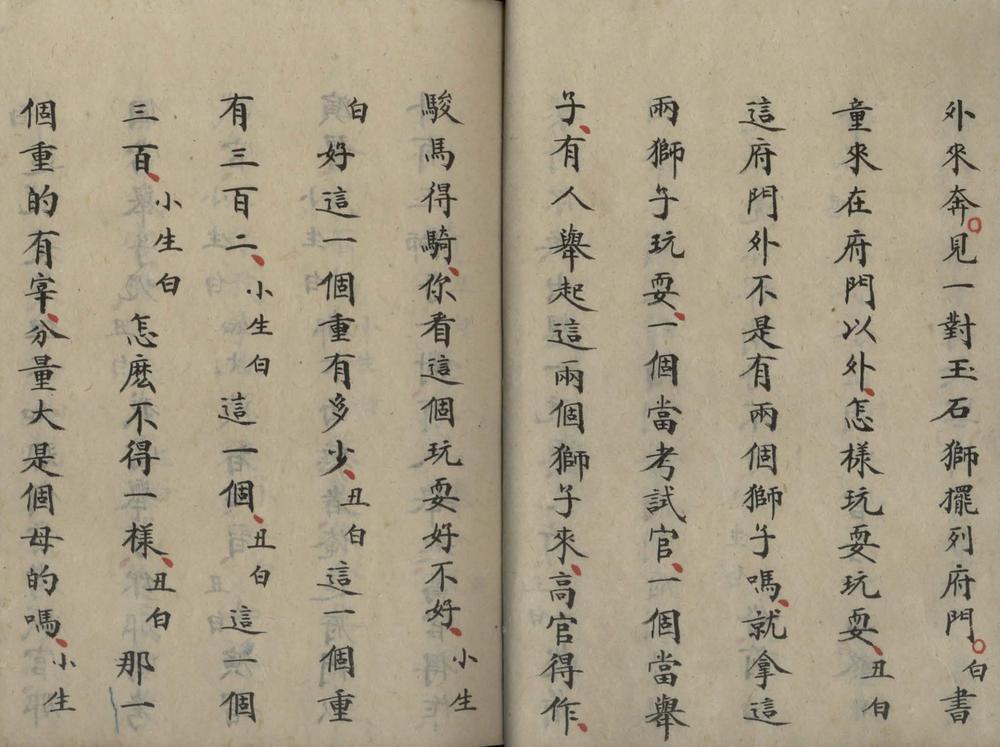 外來奔。見一對玉石獅擺列府門。白書
童來在府門以外、怎樣玩耍玩耍、丑白
這府門外不是有兩個獅子嗎、就拿這
兩獅子玩耍、一個當考試官、一個當舉
子、有人舉起這兩個獅子來、高官得作、
駿馬得騎、你看這個玩耍好不好、小生
白好這一個重有多少、丑白這一個重
有三百二、小生白這一個、丑白這一個
三百、小生白怎麽不得一樣、丑白那一
個重的有宰、分量大是個母的嗎、小生